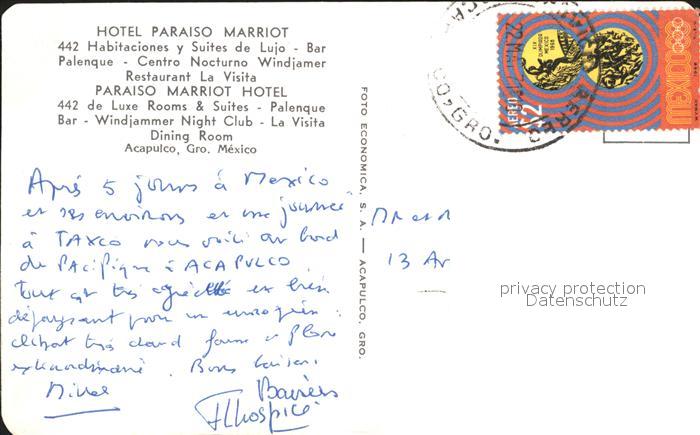 HOTEL PARAISO MARRIOT
442 Habitaciones y Suites de Lujo - Bar
Palenque - Centro Nocturno Windjamer
Restaurant La Visita
PARAISO MARRIOT HOTEL
442 de Luxe Rooms & Suites - Palenque
Bar - Windjammer Night Club - La Visita
Dining Room
Acapulco, Gro. México
FOTO ECONOMICA, S. A. — ACAPULCO, GRO.
Après 5 jours à Mexico
et ses environs et une journée
à TAXCO nous voici au bord
du PACifique à ACAPULCO.
Tout est très agréable et bien
dépaysant pour un européen :
climat très chaud faune et flore
extraordinaire. Bons baisers.
Baisers
13 Av
privacy protection
Datenschutz
XIX
OLIMPIADA
MEXICO
1968
AEREO
2
MEXICO
CO, GRO.